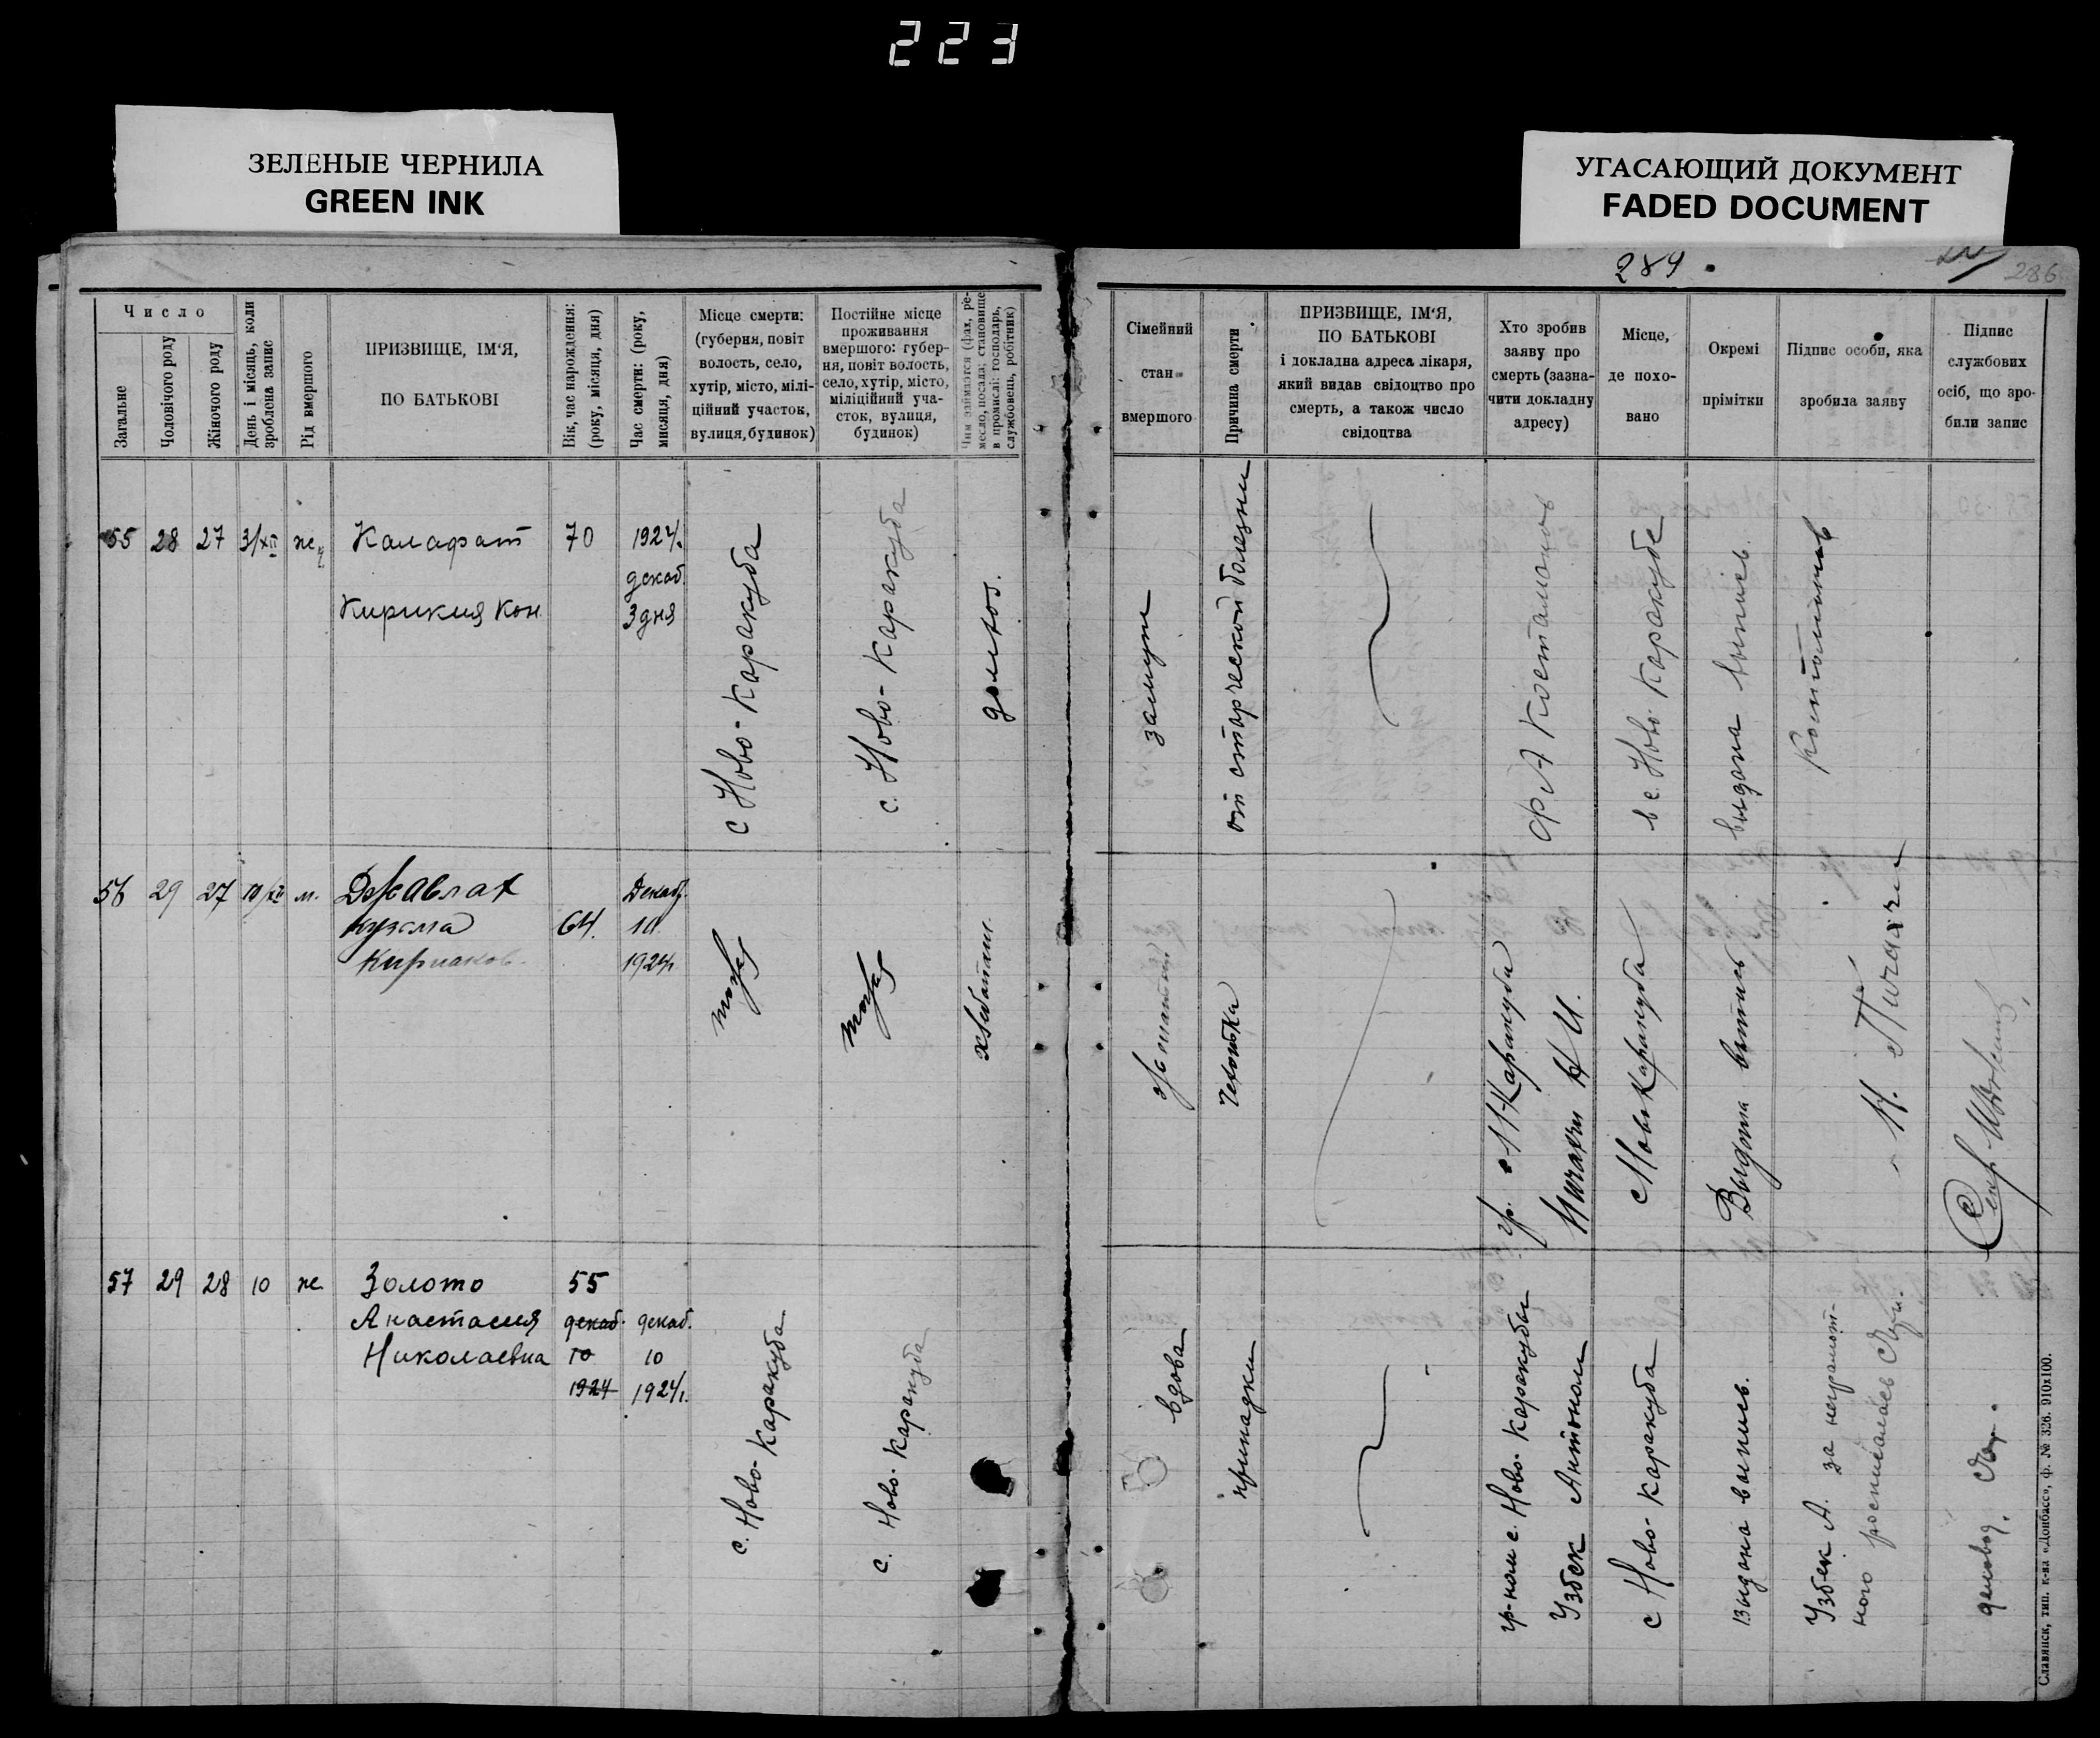 223
ЗЕЛЕНЫЕ ЧЕРНИЛА
GREEN INK
УГАСАЮЩИЙ ДОКУМЕНТ
FADED DOCUMENT
289
286
Число
Загальне
Чоловічого роду
Жіночого роду
День і місяць, коли
зроблена запис
Рід вмершого
ПРИЗВИЩЕ, ІМ'Я,
ПО БАТЬКОВІ
Вік, час народження:
(року, місяця, дня)
Час смерти: (року,
мисяця, дня)
Місце смерти:
(губерня, повіт
волость, село,
хутір, місто, мілі-
ційний участок,
вулиця, будинок)
Постійне місце
проживання
вмершого: губер-
ня, повіт волость,
село, хутір, місто,
міліційний уча-
сток, вулиця,
будинок)
Чим займався (фах, ре-
месло, посада; становище
в промислі: господарь,
службовець, робітник)
Сімейний
стан
вмершого
Причина смерти
ПРИЗВИЩЕ, ІМ'Я,
ПО БАТЬКОВІ
і докладна адреса лікаря,
який видав свідоцтво про
смерть, а також число
свідоцтва
Хто зробив
заяву про
смерть (зазна-
чити докладну
адресу)
Місце,
де похо-
вано
Окремі
прімітки
Підпис особи, яка
зробила заяву
Підпис
службових
осіб, що зро-
били запис
55 28 27 3/XII Калафат 70 1924.
декаб.
Кирикия Кон. 3 дня
с Ново-Каракуба
с. Ново-Каракуба
домхоз.
замуж
от старческой болезни
Ф А Костамонов
в с. Ново-Каракубе
выдана выпись.
56 29 27 10/XII м. Джавлах Декаб.
Кузма 64. 10
Кириаков. 1924.
тоже
тоже
женатый
Чехотка
гр. Н Каракуба
Пичахчи Н И.
Ново Каракуба
Выдана выпись
Н. Пичахчи
57 29 28 10 же Золото 55
Анастасия декаб. декаб.
Николаевна 10 10
1924 1924.
с. Ново-Каракуба
с. Ново-Каракуба
вдова
припадки
гр-ном с. Ново-Каракубы
Узбек Антоном
с Ново-Каракуба
Выдана выпись.
Узбек А. за неграмот-
ного росписалась
деловод.
Славянск, тип. к-ва «Донбасс», ф. № 326. 910х100.